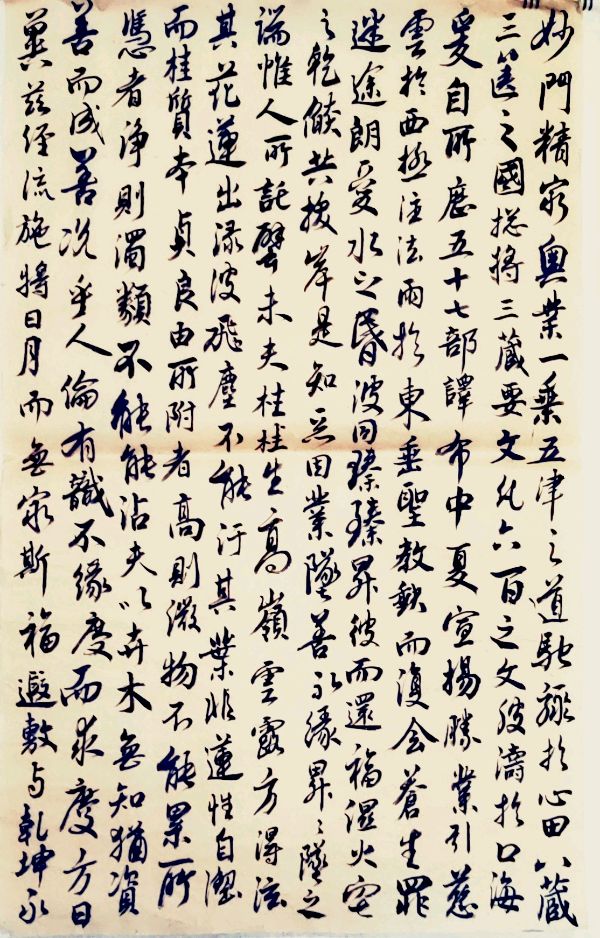 妙門精窮奧業一乘五津之道馳驟於心田八藏
三篋之國揔將三藏要文凡六百之文波濤於口海
爰自所歷五十七部譯布中夏宣揚勝業引慈
雲於西極注法雨於東垂聖教缺而復全蒼生罪
迷途朗愛水之昏波同臻臻昇彼而還福濕火宅
之乾燄共拔岸是知惡因業墜善以緣昇〻墜之
端惟人所託譬未夫桂桂生高嶺雲露方得泫
其花蓮出淥波飛塵不能汙其葉非蓮性自潔
而桂質本貞良由所附者高則微物不能累所
憑者淨則濁類不能能沾夫以卉木無知猶資
善而成善況乎人倫有識不緣慶而求慶方曰
冀茲經流施將日月而無窮斯福遐敷与乾坤永